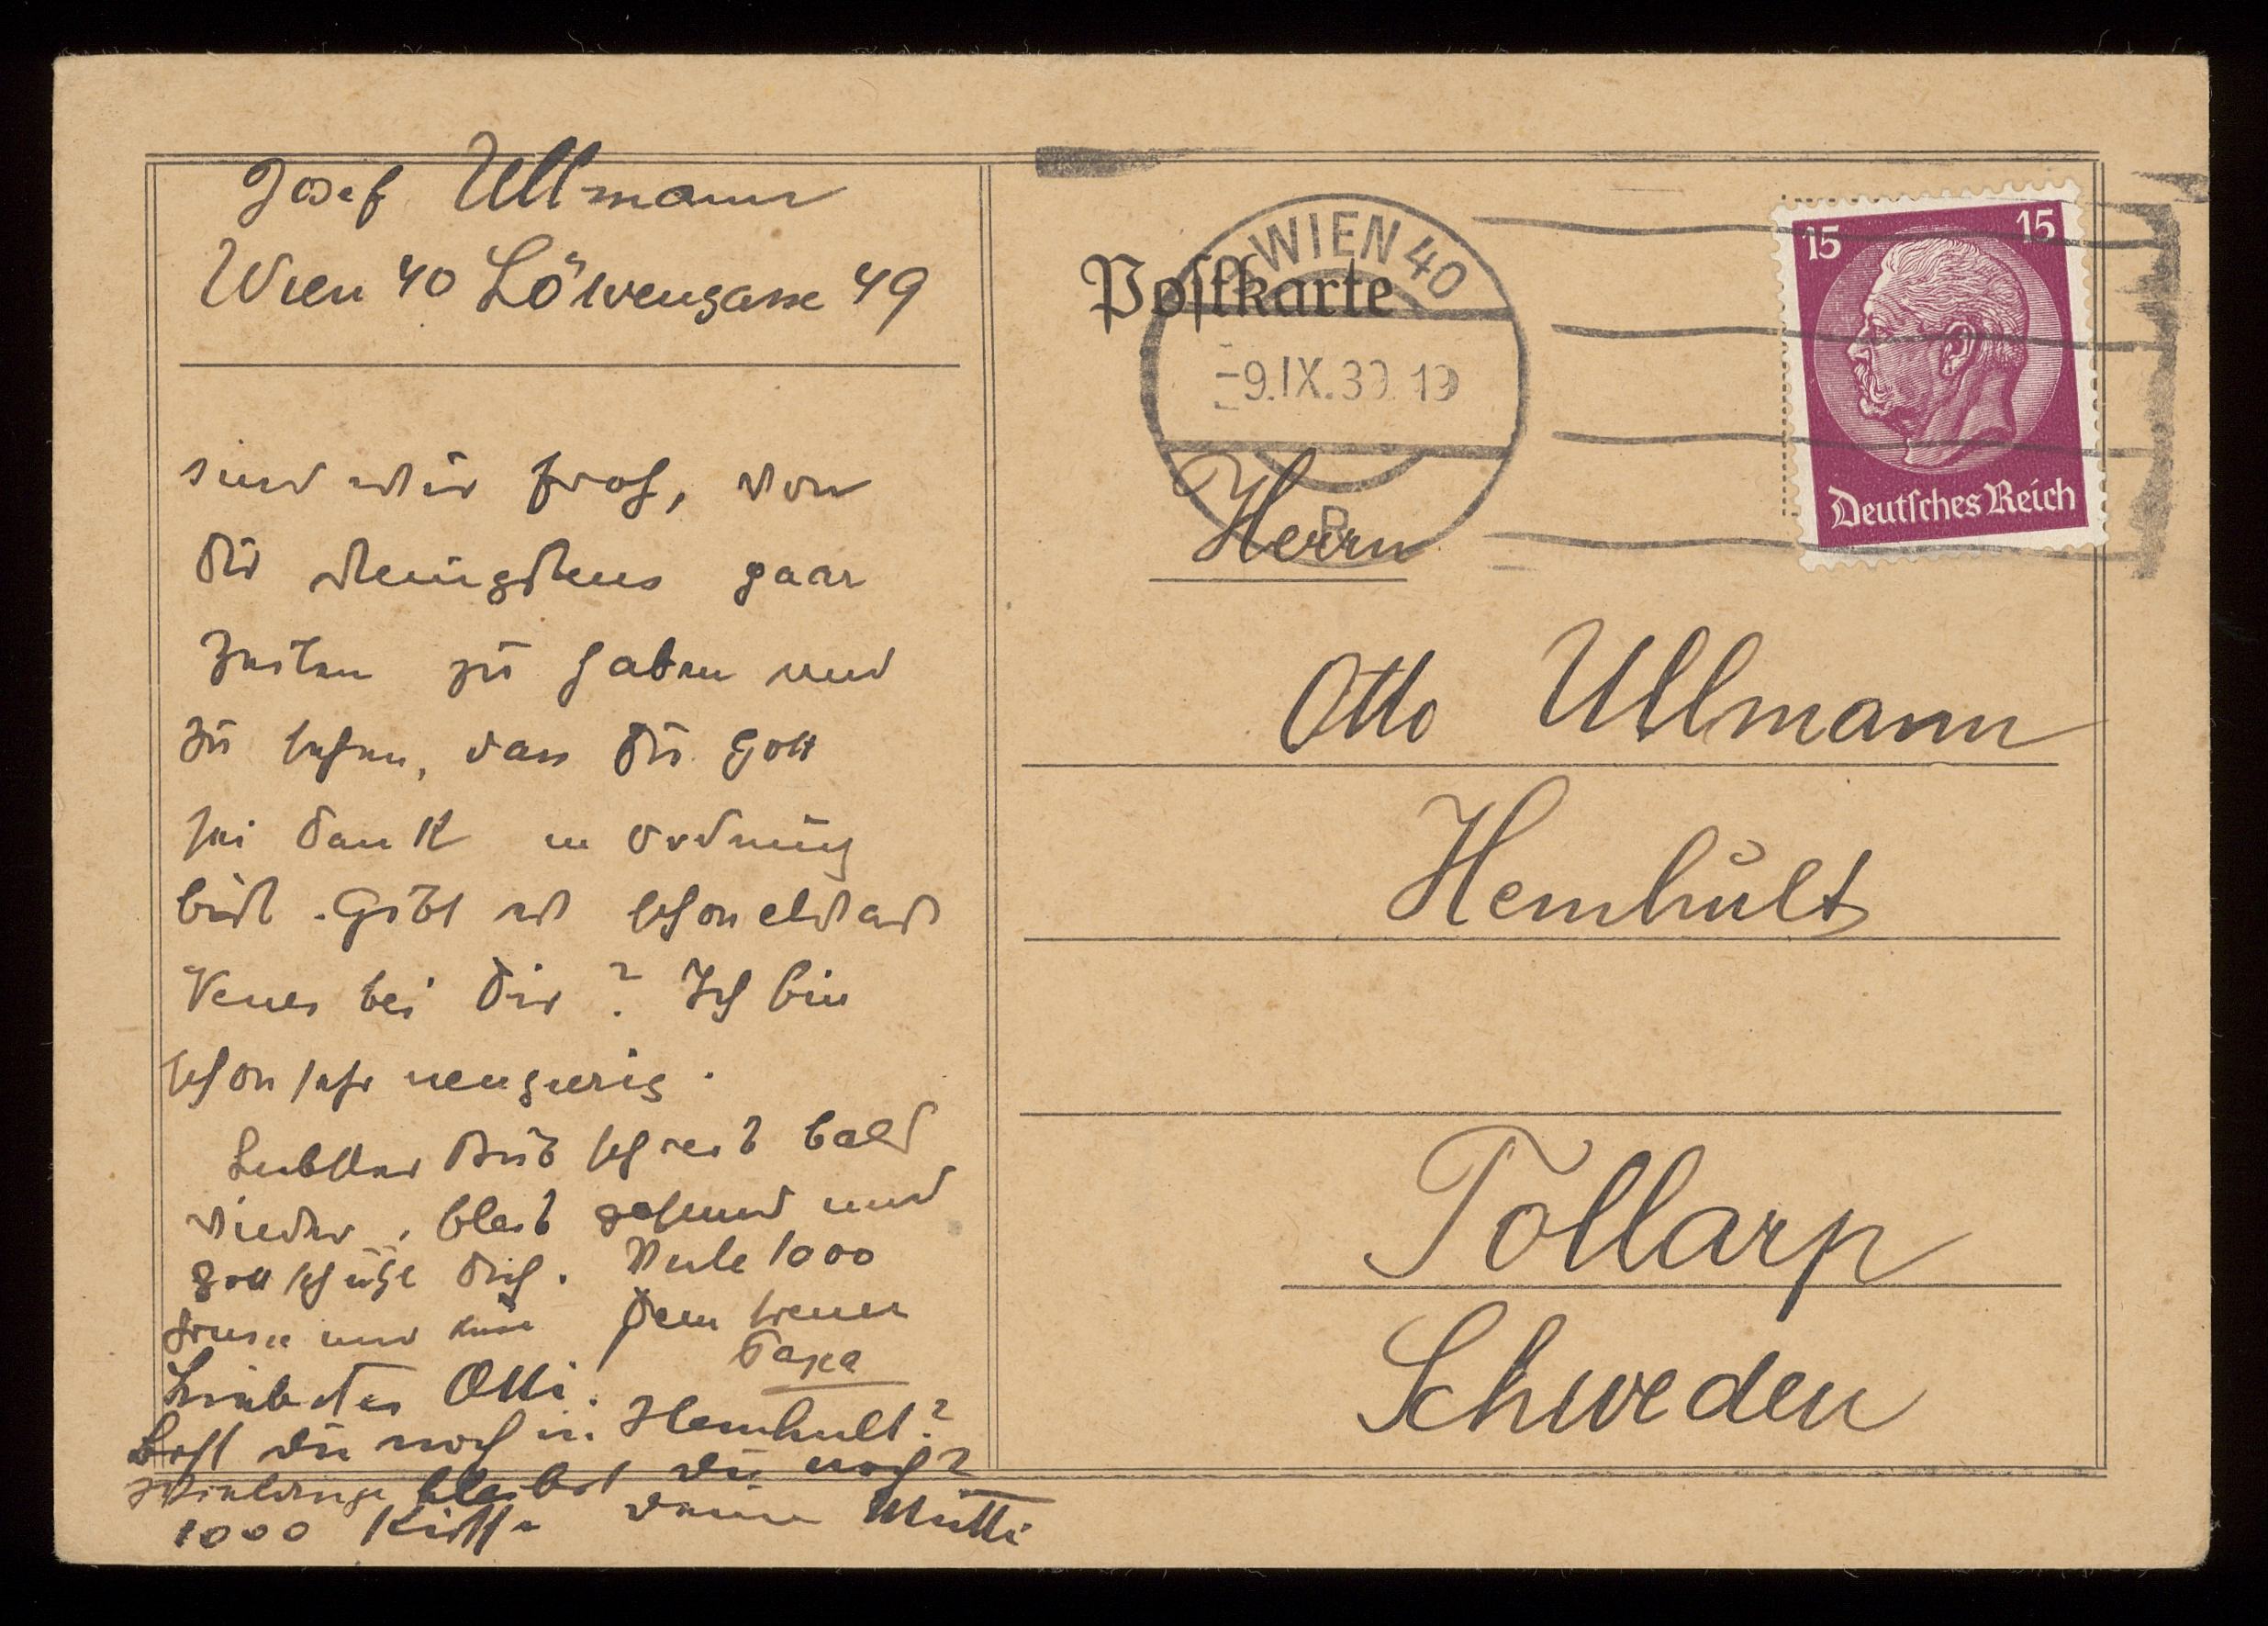 Josef Ullmann
Wien 40 Löwengasse 49
sind wir froh, von
Dir wenigstens paar
Zeilen zu haben und
zu sehen, dass Du Gott
sei Dank in Ordnung
bist. Gibt es schon etwas
Neues bei Dir? Ich bin
schon sehr neugierig.
Liebster Bub schreib bald
wieder, bleib gesund und
Gott schütze Dich. Viele 1000
Grüsse und Küsse Dein treuer
Papa
Liebster Otti!
Bist du noch in Hemhult?
Wielange bleibst du noch?
1000 Küsse deine Mutti
Postkarte
WIEN 40
-9.IX.39.19
15 15
Deutsches Reich
Herrn
Otto Ullmann
Hemhult
Tollarp
Schweden